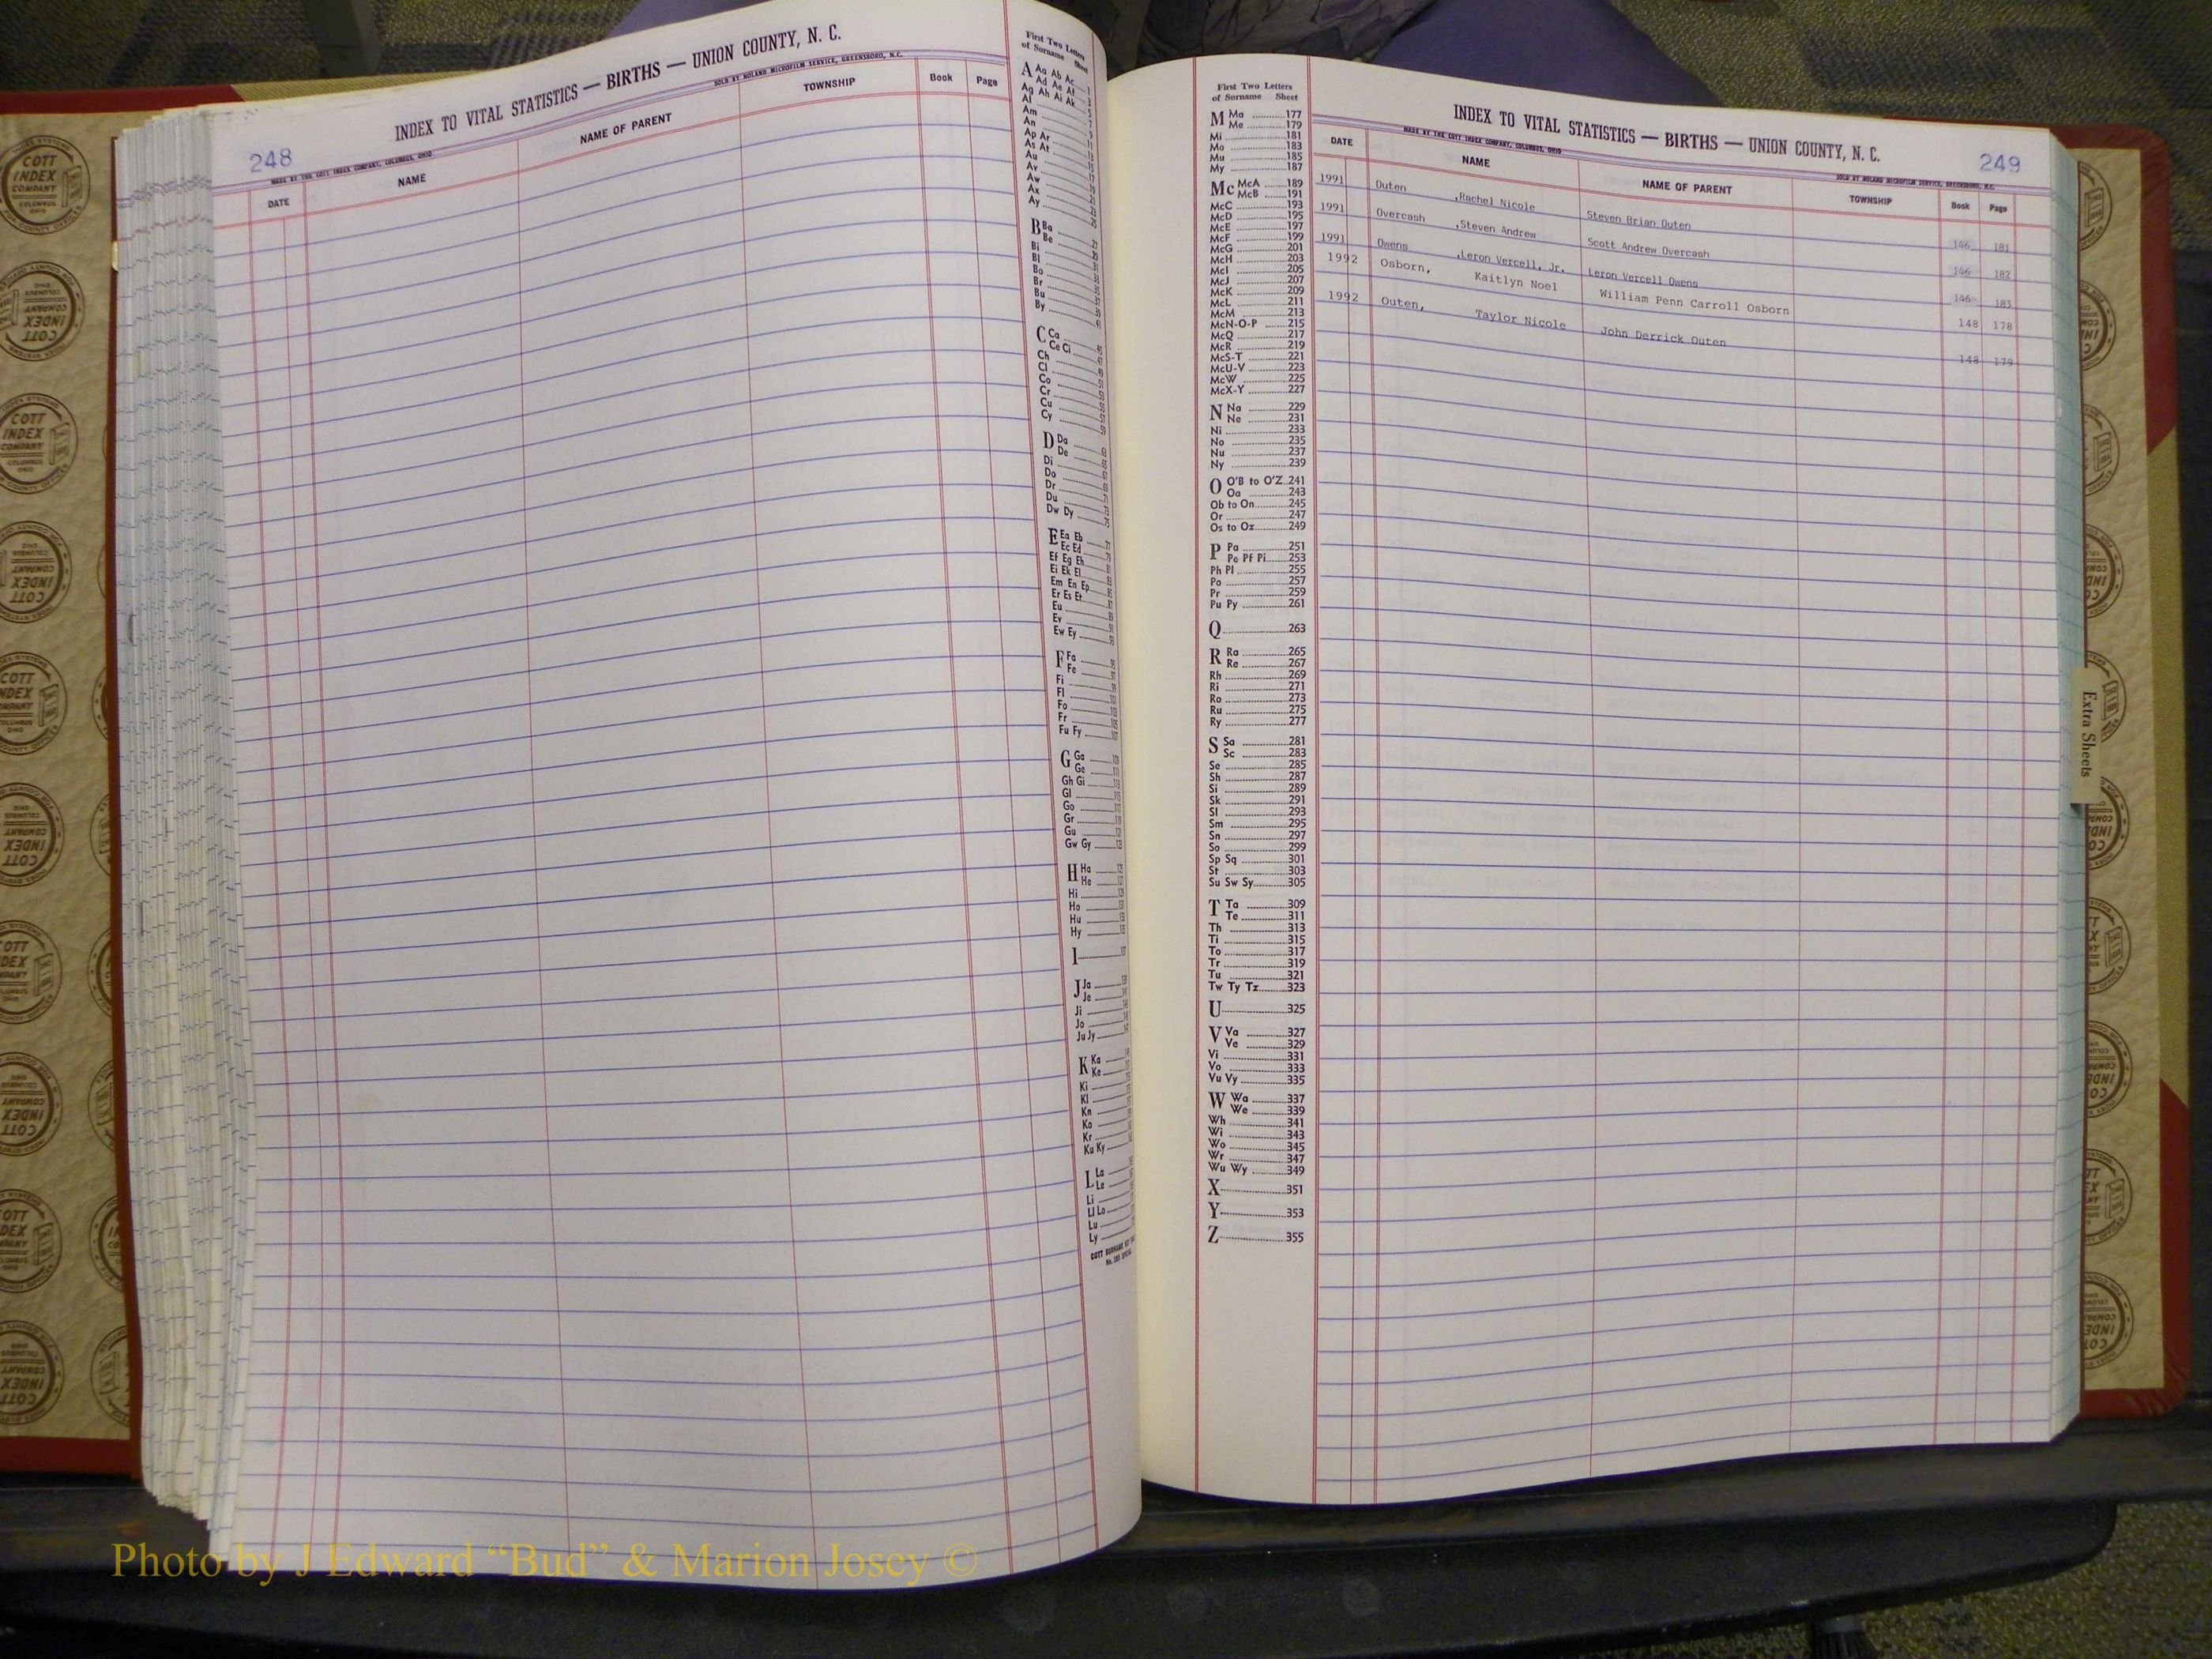 INDEX TO VITAL STATISTICS — BIRTHS — UNION COUNTY, N. C.
248
MADE BY THE COTT INDEX COMPANY, COLUMBUS, OHIO
SOLD BY NOLAND MICROFILM SERVICE, GREENSBORO, N.C.
DATE NAME NAME OF PARENT TOWNSHIP Book Page
First Two Letters
of Surname Sheet
A Aa Ab Ac
Ad Ae Af
Ag Ah Ai Ak
Al
Am
An
Ap Ar
As At
Au
Av
Aw
Ax
Ay
B Ba
Be
Bi
Bl
Bo
Br
Bu
By
C Ca
Ce Ci
Ch
Cl
Co
Cr
Cu
Cy
D Da
De
Di
Do
Dr
Du
Dw Dy
E Ea Eb
Ec Ed
Ef Eg Eh
Ei Ek El
Em En Ep
Er Es Et
Eu
Ev
Ew Ey
F Fa
Fe
Fi
Fl
Fo
Fr
Fu Fy
G Ga
Ge
Gh Gi
Gl
Go
Gr
Gu
Gw Gy
H Ha
He
Hi
Ho
Hu
Hy
I
J Ja
Je
Ji
Jo
Ju Jy
K Ka
Ke
Ki
Kl
Kn
Ko
Kr
Ku Ky
L La
Le
Li
Ll Lo
Lu
Ly
First Two Letters
of Surname Sheet
M Ma 177
Me 179
Mi 181
Mo 183
Mu 185
My 187
Mc McA 189
McB 191
McC 193
McD 195
McE 197
McF 199
McG 201
McH 203
McI 205
McJ 207
McK 209
McL 211
McM 213
McN-O-P 215
McQ 217
McR 219
McS-T 221
McU-V 223
McW 225
McX-Y 227
N Na 229
Ne 231
Ni 233
No 235
Nu 237
Ny 239
O O'B to O'Z 241
Oa 243
Ob to On 245
Or 247
Os to Oz 249
P Pa 251
Pe Pf Pi 253
Ph Pl 255
Po 257
Pr 259
Pu Py 261
Q 263
R Ra 265
Re 267
Rh 269
Ri 271
Ro 273
Ru 275
Ry 277
S Sa 281
Sc 283
Se 285
Sh 287
Si 289
Sk 291
Sl 293
Sm 295
Sn 297
So 299
Sp Sq 301
St 303
Su Sw Sy 305
T Ta 309
Te 311
Th 313
Ti 315
To 317
Tr 319
Tu 321
Tw Ty Tz 323
U 325
V Va 327
Ve 329
Vi 331
Vo 333
Vu Vy 335
W Wa 337
We 339
Wh 341
Wi 343
Wo 345
Wr 347
Wu Wy 349
X 351
Y 353
Z 355
INDEX TO VITAL STATISTICS — BIRTHS — UNION COUNTY, N. C.
249
MADE BY THE COTT INDEX COMPANY, COLUMBUS, OHIO
SOLD BY NOLAND MICROFILM SERVICE, GREENSBORO, N.C.
DATE NAME NAME OF PARENT TOWNSHIP Book Page
1991 Outen ,Rachel Nicole Steven Brian Outen 146 181
1991 Overcash ,Steven Andrew Scott Andrew Overcash 146 182
1991 Owens ,Leron Vercell, Jr. Leron Vercell Owens 146 183
1992 Osborn, Kaitlyn Noel William Penn Carroll Osborn 148 178
1992 Outen, Taylor Nicole John Derrick Outen 148 179
Extra Sheets
COTT INDEX COMPANY
COLUMBUS OHIO
Photo by J Edward “Bud” & Marion Josey ©